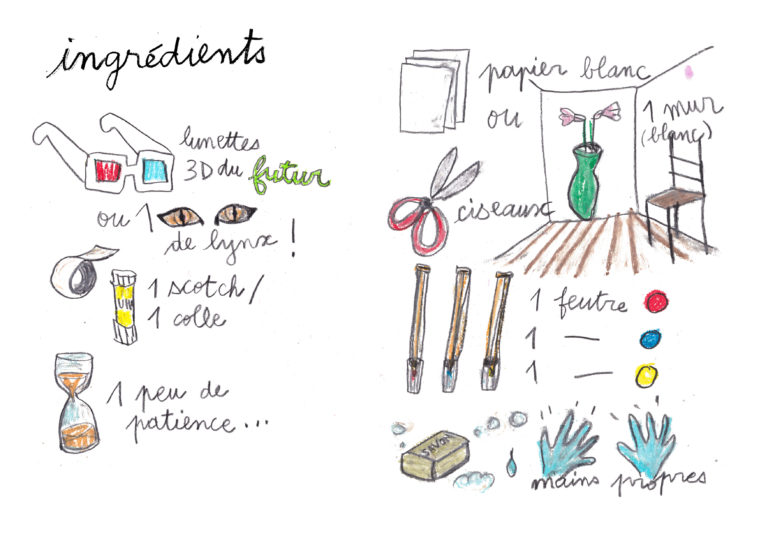 ingrédients
lunettes
3D du futur
ou 1
de lynx !
1 scotch/
1 colle
UHU
1 peu de
patience...
papier blanc
ou
1 mur
(blanc)
ciseaux
1 feutre
1 —
1 —
SAVON
mains propres